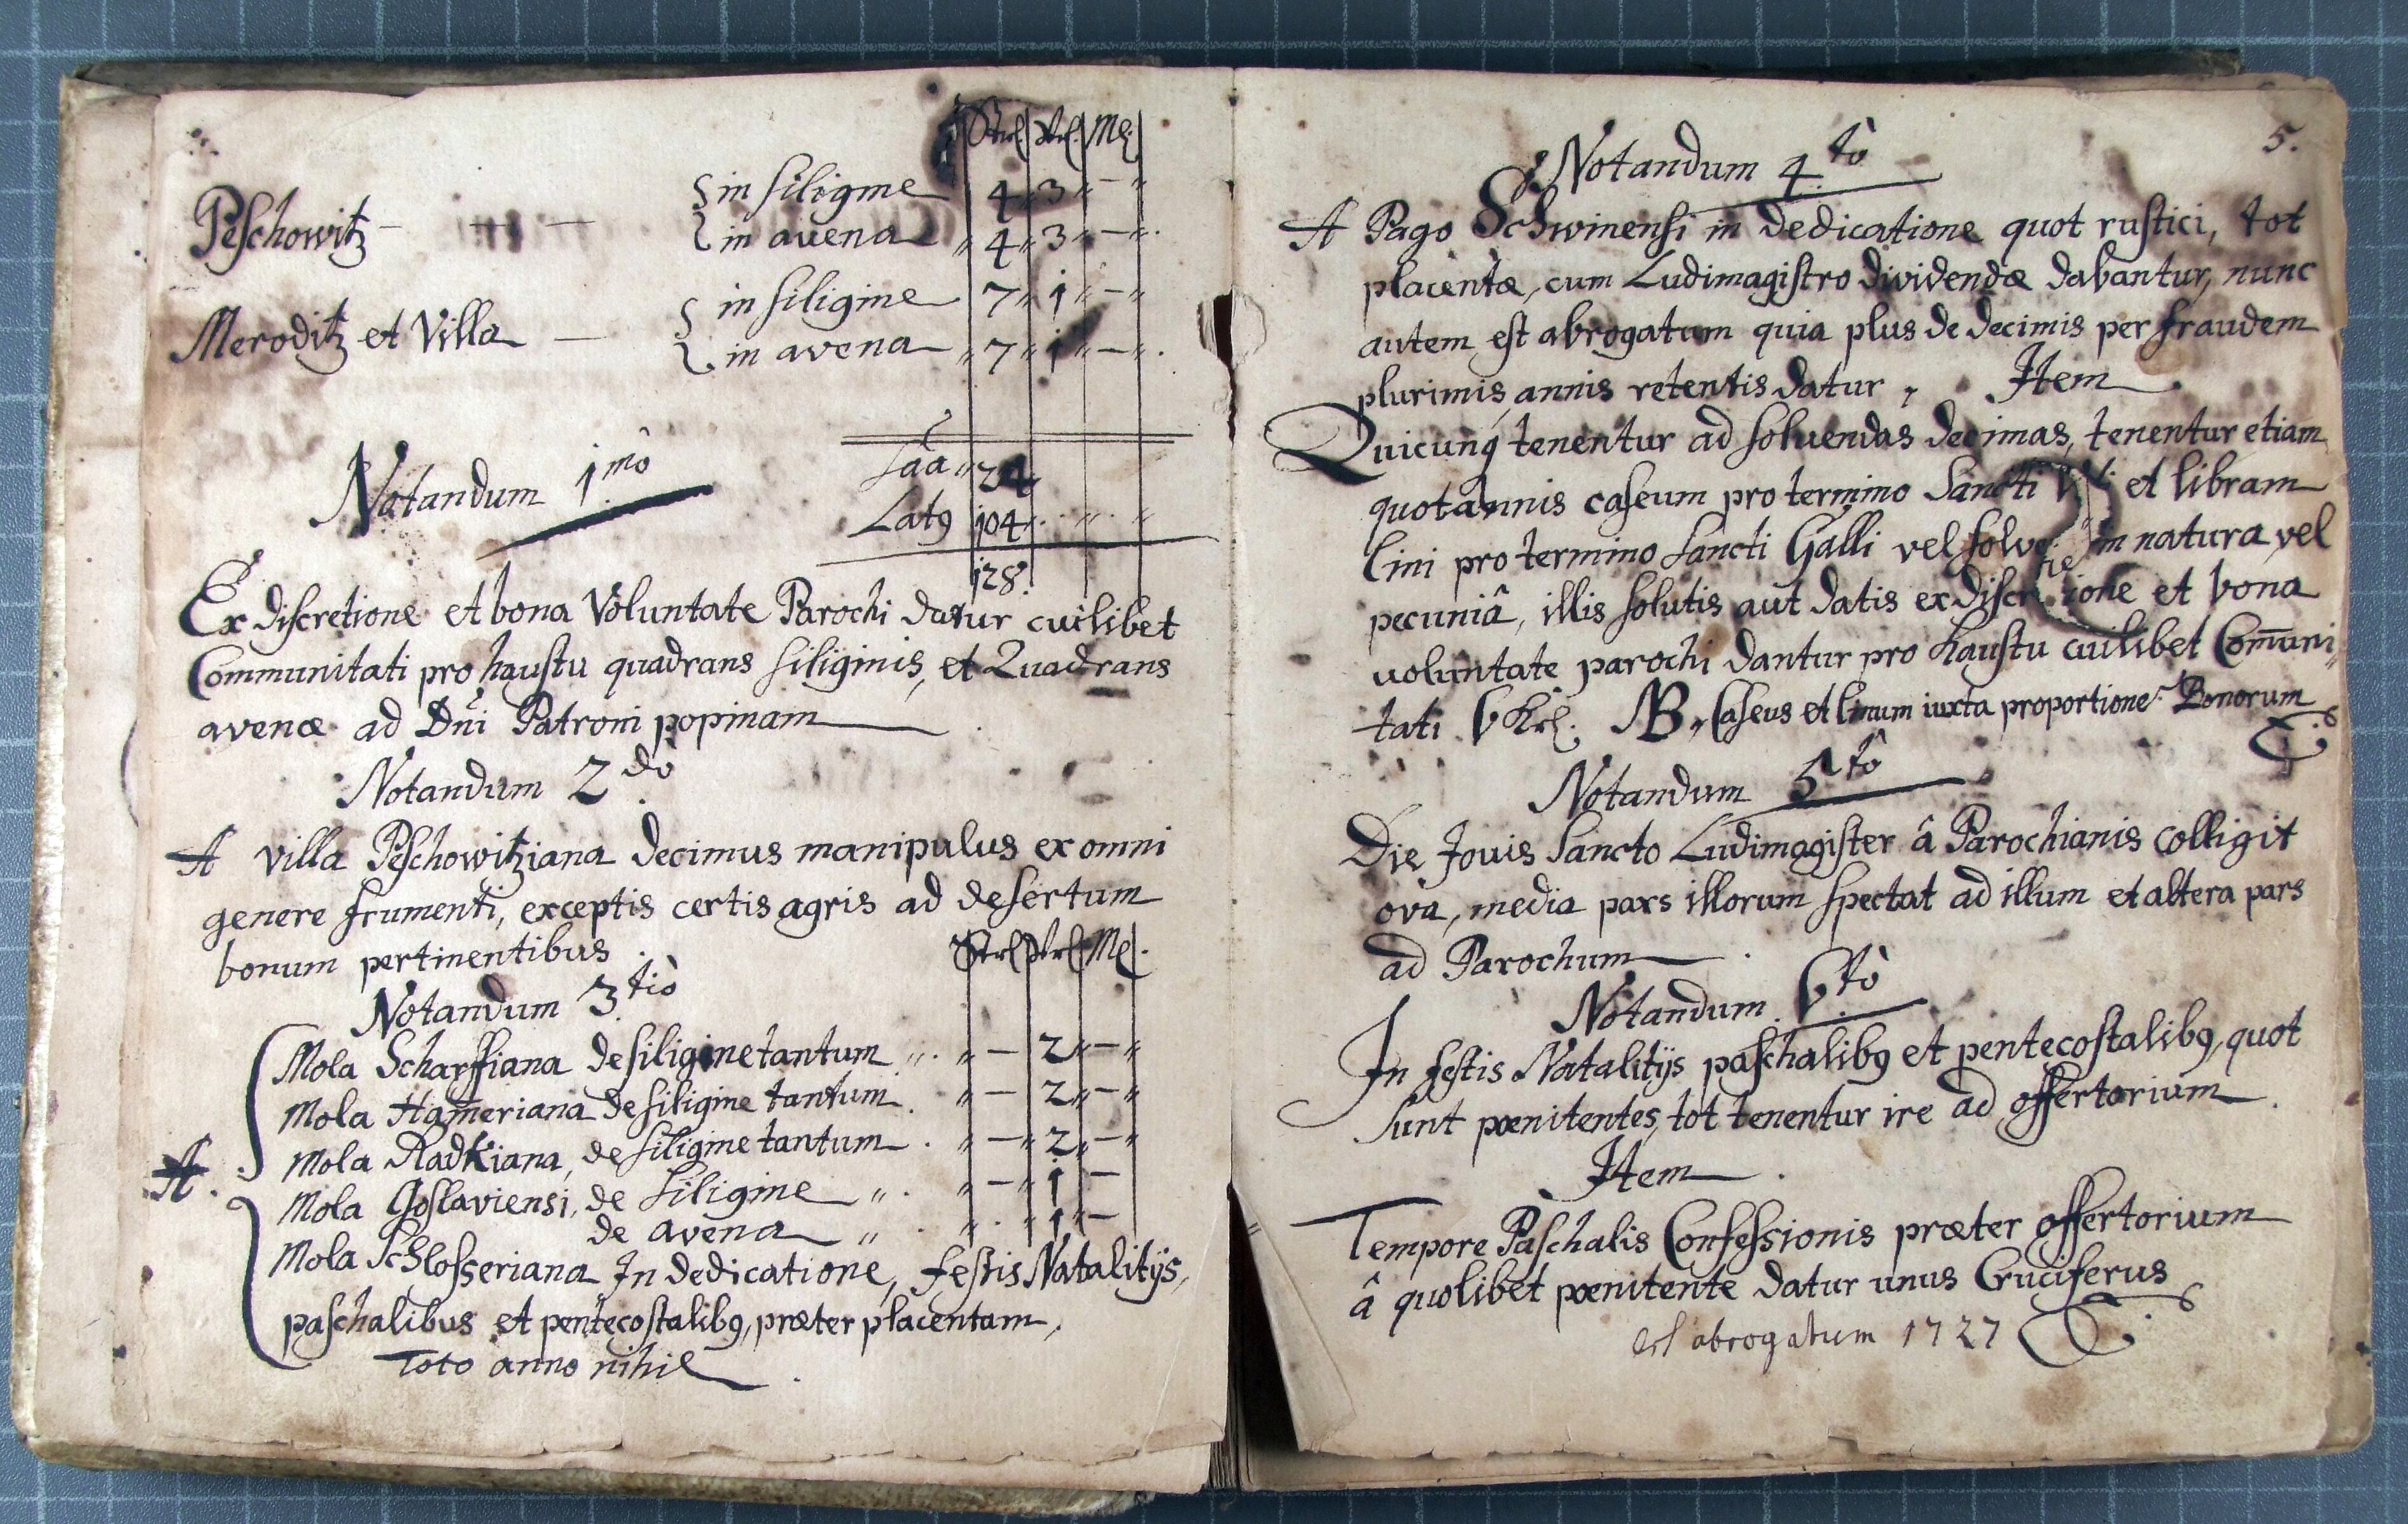 Strl Vrl. Ml.
Peschowitz — — — { in siligine 4 „ 3 „ — „
in avena „ 4 „ 3 „ — „.
Meroditz et Villa — { in siligine 7 „ 1 „ — „
in avena „ 7 „ 1 „ — „.
Notandum 1mô
Lāā „ 24
Lat9 104 „ . „ . „
128.
Ex discretione et bona Voluntate Parochi datur cuilibet
Communitati pro haustu quadrans siliginis, et Quadrans
avenæ ad Dn̄i Patroni popinam .
Notandum 2.dò
A villa Peschowitziana decimus manipulus ex omni
genere frumenti, exceptis certis agris ad desertum
bonum pertinentibus .
Strl Vrl Ml.
Notandum 3.tiò
Mola Scharffiana de siligine tantum „. „ — 2 „ — „
Mola Ham̄eriana de siligine tantum . „ — 2 „ — „
Mola Radkiana, de siligine tantum . „ — „ 2 „ — „
A. Mola Goslaviensi, de siligine „ . „ — „ 1 —
de avena „ . „ . „ 1 „ —
Mola Schlosseriana In dedicatione, festis Natalitijs,
paschalibus et pentecostalib9, præter placentam,
Toto anno nihil .
5.
Notandum 4.tò
A Pago Schwinensi in dedicatione quot rustici, tot
placentæ, cum Ludimagistro dividendæ dabantur, nunc
autem est abrogatum quia plus de decimis per fraudem
plurimis annis retentis datur, Item .
Quicunq tenentur ad soluendas decimas, tenentur etiam
quotannis caseum pro termino Sancti Viti et libram
lini pro termino sancti Galli vel solvere in natura vel
pecuniâ, illis solutis aut datis ex discretione et bona
voluntate parochi dantur pro haustu cuilibet Com̄uni„
tati 6 Krl. NB. Caseus et linum iuxta proportione Bonorum
Notandum 5tô
Die Jouis Sancto Ludimagister â Parochianis colligit
ova, media pars illorum spectat ad illum et altera pars
ad Parochum .
Notandum. 6tò
In festis Natalitijs paschalib9 et pentecostalib9, quot
sunt pœnitentes, tot tenentur ire ad offertorium .
Item .
Tempore Paschalis Confessionis præter offertorium
â quolibet pœnitente datur unus Cruciferus
est abrogatum 1727